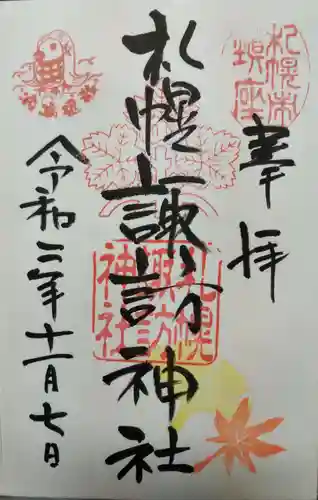 奉拝
札幌諏訪神社
令和三年十一月七日
札幌市
鎮座
札幌
諏訪
神社